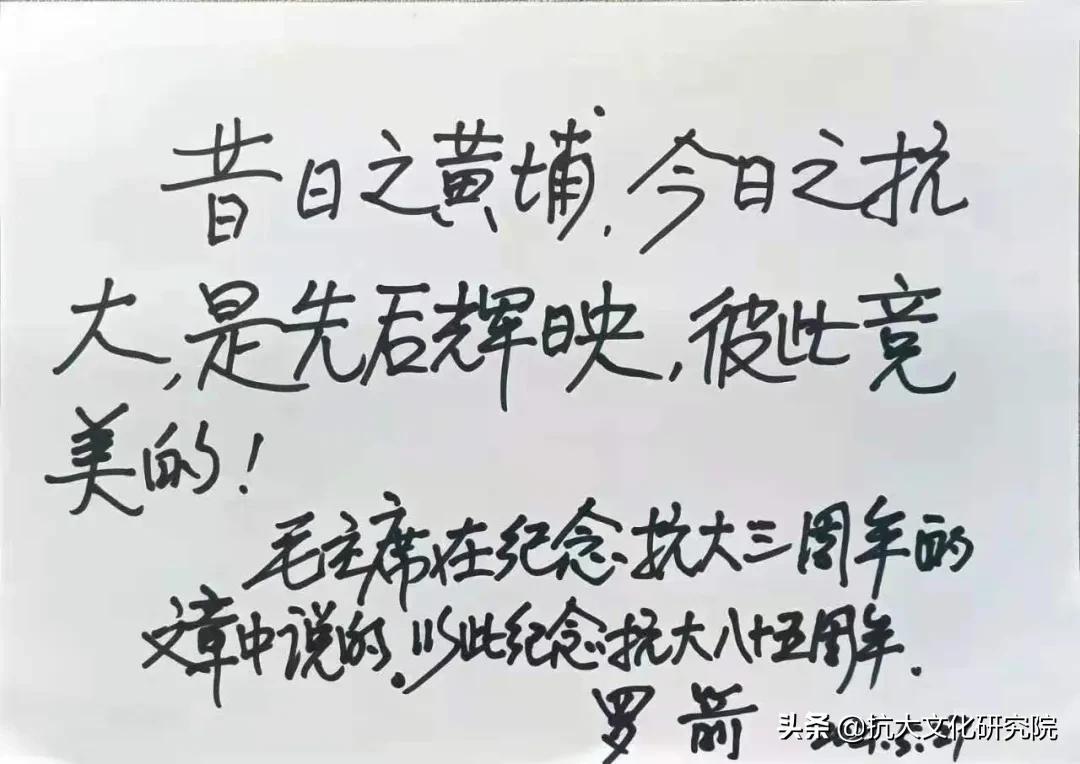 昔日之黄埔,今日之抗
大,是先后辉映,彼此竞
美的!
毛主席在纪念抗大三周年的
文章中说的.以此纪念抗大八十五周年.
罗箭
头条@抗大文化研究院